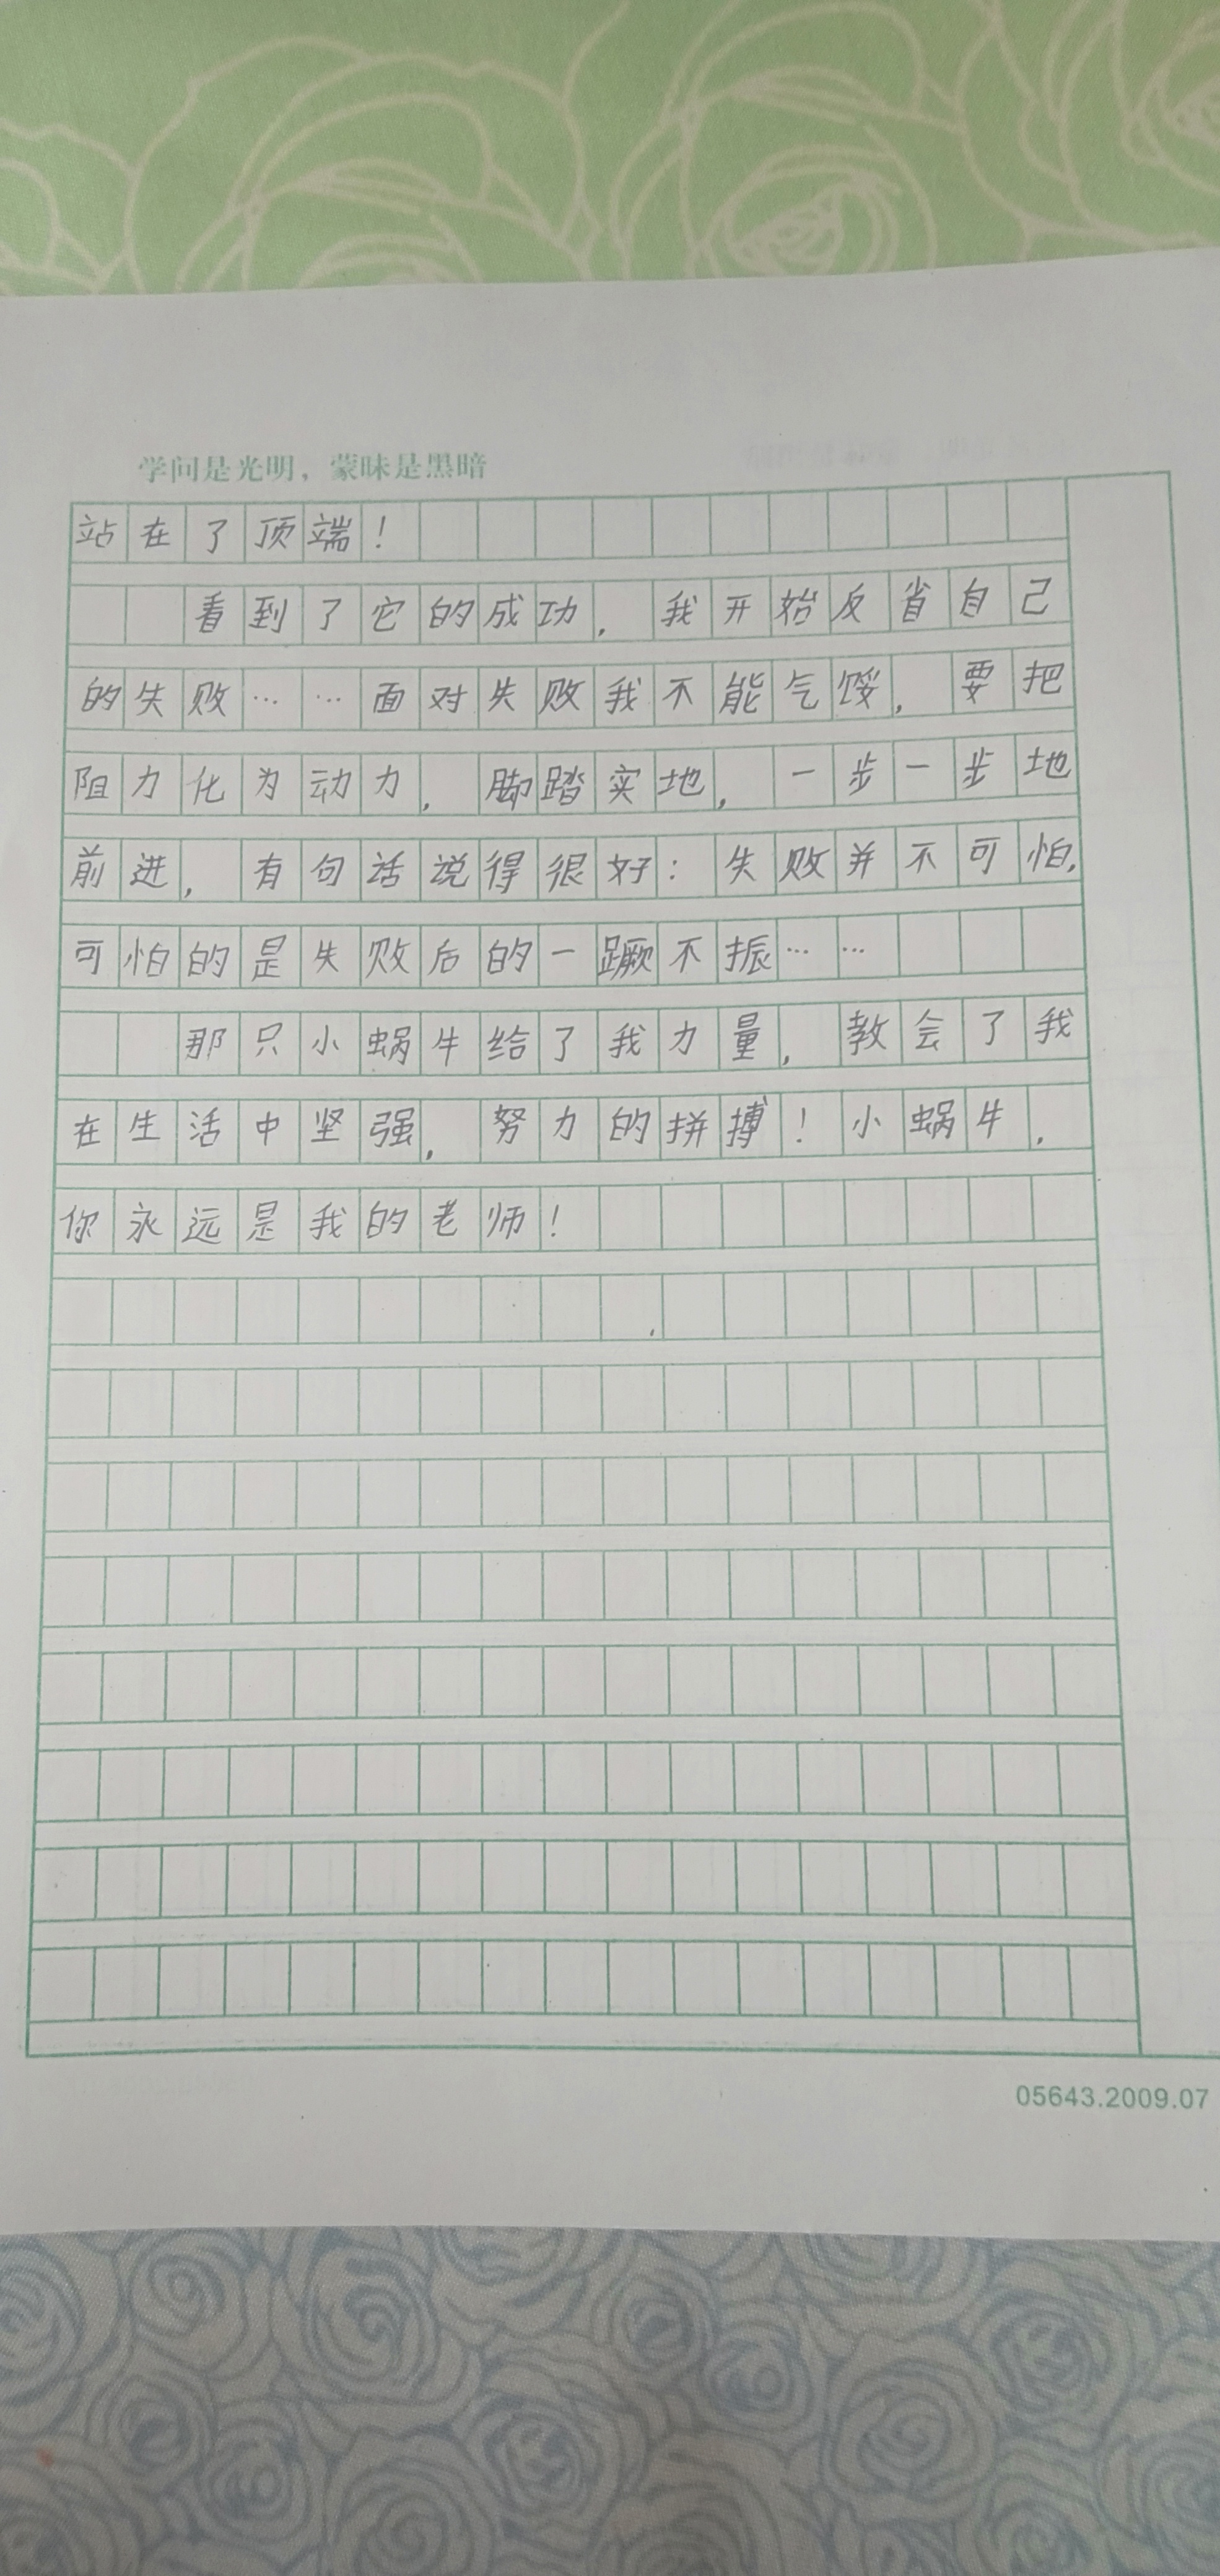 学问是光明，蒙昧是黑暗
站在了顶端！
看到了它的成功，我开始反省自己
的失败……面对失败我不能气馁，要把
阻力化为动力，脚踏实地，一步一步地
前进，有句话说得很好：失败并不可怕，
可怕的是失败后的一蹶不振……
那只小蜗牛给了我力量，教会了我
在生活中坚强，努力的拼搏！小蜗牛，
你永远是我的老师！
05643.2009.07